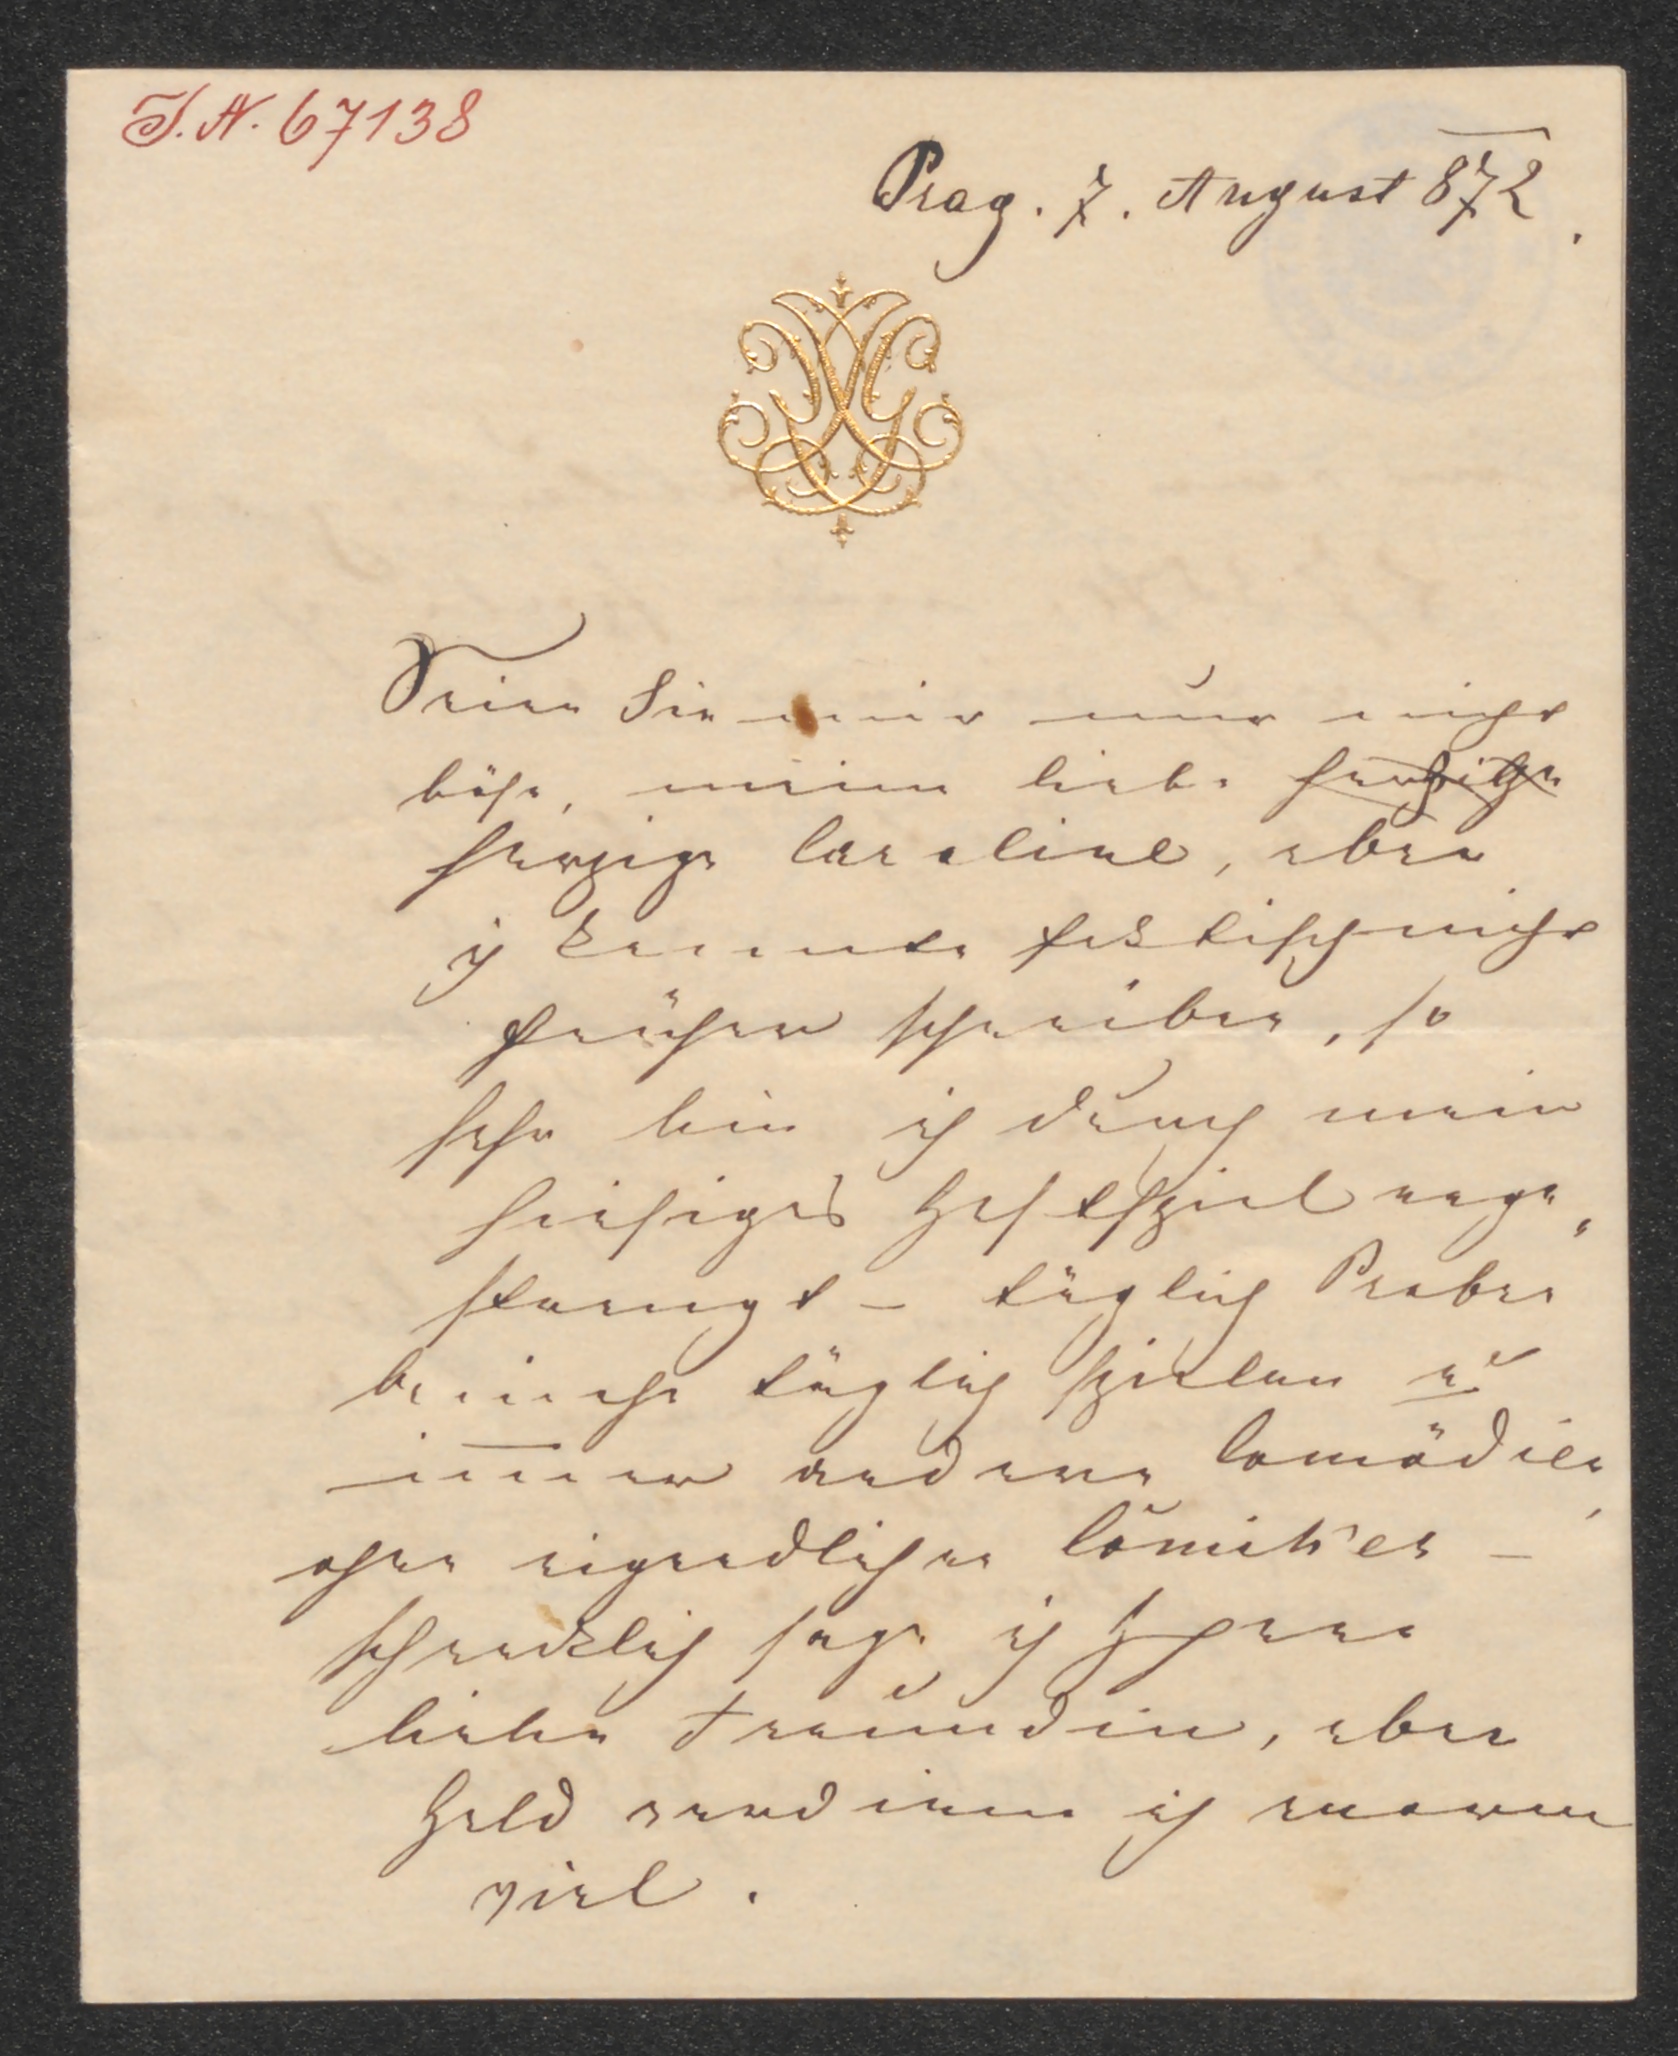 I. N. 67138
Prag. 7. August 872.
Seien Sie mir nur nicht
böse, meine liebe herzige
herzige Caroline, aber
ich konnte faktisch nicht
früher schreiben, so
sehr bin ich durch mein
hiesiges Gastspiel ange„
strengt – täglich Proben
beinahe täglich spielen u
immer andere Comödien,
ohne eigendlichen Comité's –
schrecklich sage ich Ihnen
liebe Freundin, aber
Geld verdiene ich enorm
viel.